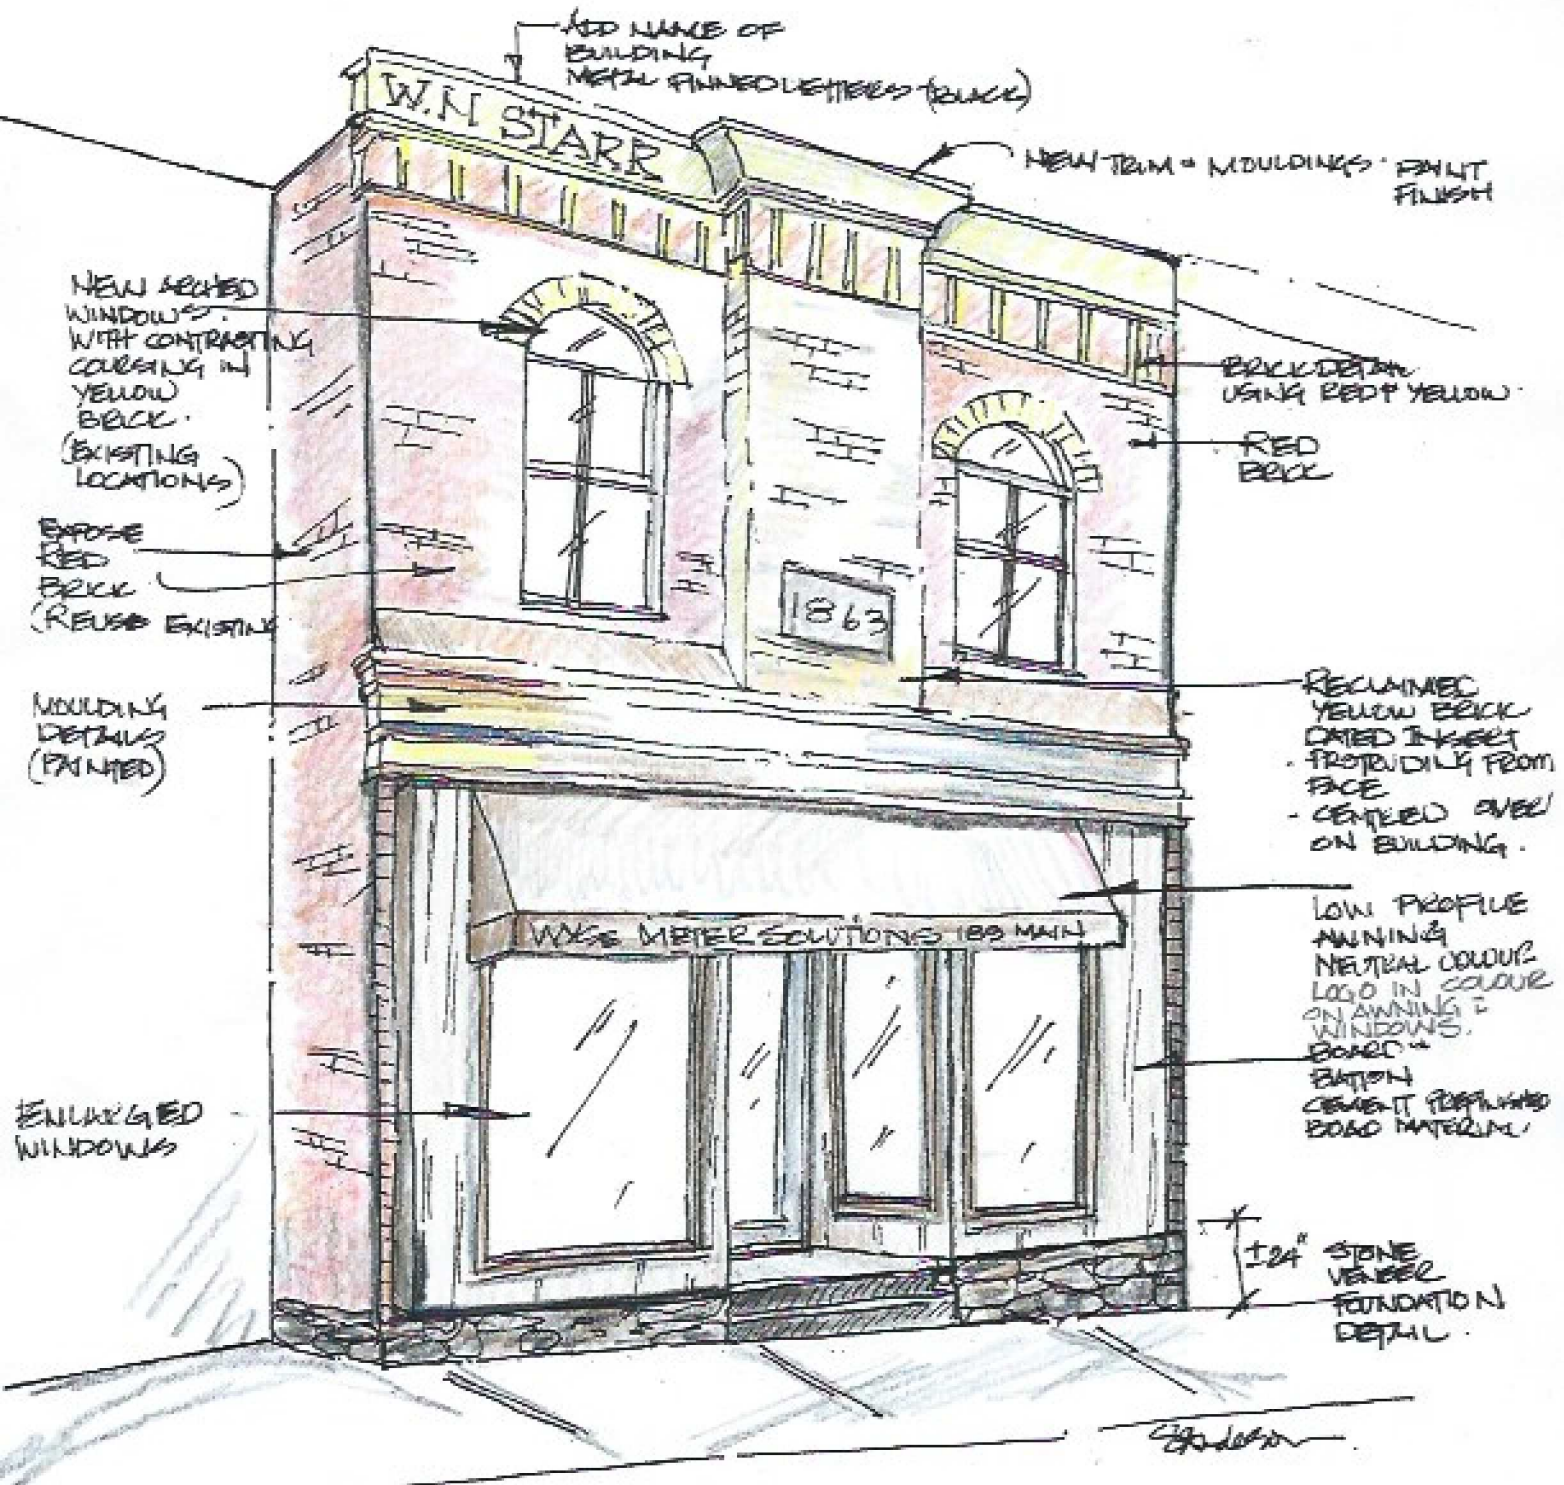 ADD NAME OF
BUILDING
METAL PINNED LETTERS (BLACK)
W.N STARR
NEW TRIM + MOULDINGS - PAINT
FINISH
NEW ARCHED
WINDOWS.
WITH CONTRASTING
COURSING IN
YELLOW
BRICK.
(EXISTING
LOCATIONS)
BRICK DETAIL
USING RED & YELLOW.
RED
BRICK
EXPOSE
RED
BRICK
(REUSE EXISTING
1863
MOULDING
DETAILS
(PAINTED)
RECLAIMED
YELLOW BRICK
DATED INSERT
- PROTRUDING FROM
FACE
- CENTRED OVER
ON BUILDING.
LOW PROFILE
AWNING
NEUTRAL COLOUR
LOGO IN COLOUR
ON AWNING +
WINDOWS.
BOARD +
BATTON
CEMENT PREFINISHED
BOARD MATERIAL.
METER SOLUTIONS MAIN
ENLARGED
WINDOWS
±24" STONE
VENEER
FOUNDATION
DETAIL.